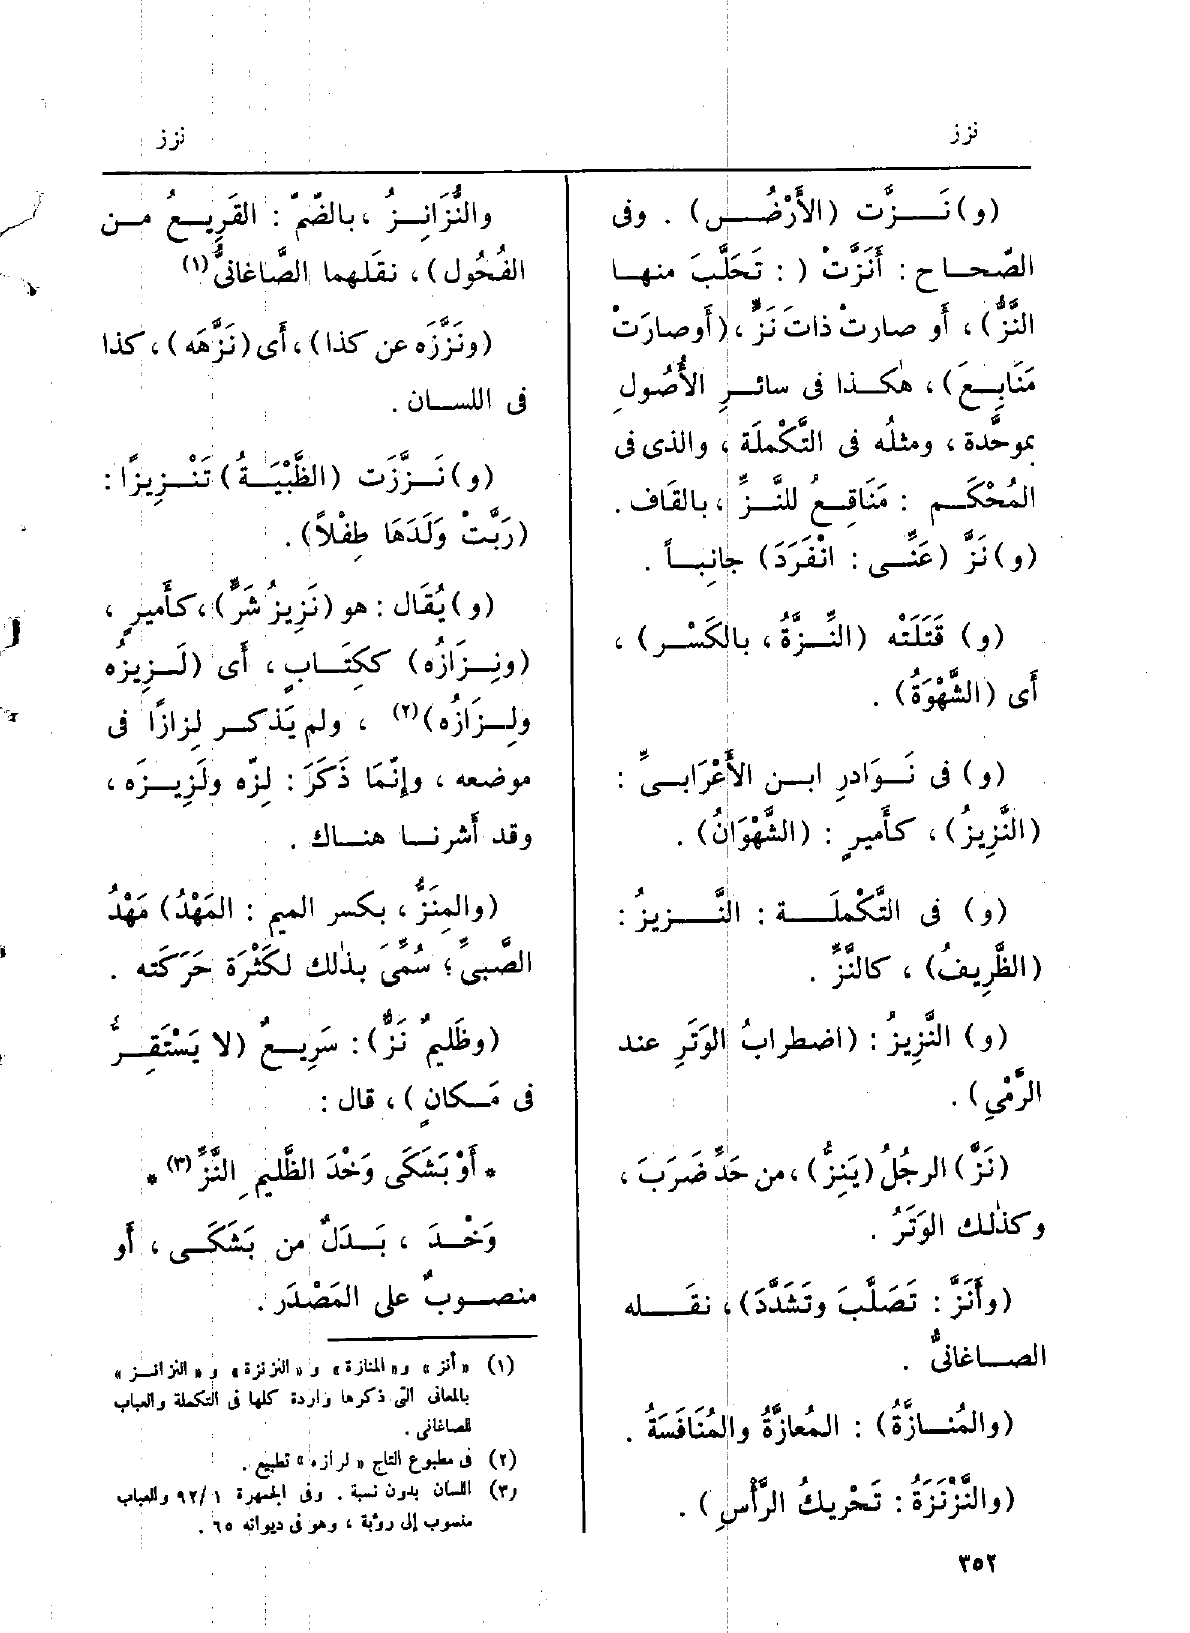 نزز
نزز
(و) نَــزَّت (الأَرْضُــس) . وفى
الصّحــاح : أَنَزَّتْ ( : تَحَلَّبَ منهـا
النَّزُّ) ، أو صارتْ ذاتَ نَزٍّ ، (أو صارَتْ
مَنَابِـعَ) ، هٰكـذا فى سائـرِ الأُصُولِ
بموحَّدة ، ومثلُه فى التَّكْملَة ، والذى فى
المُحْكَـم : مَنَاقِـعُ للنَّـزِّ ، بالقَاف .
(و) نَزَّ (عَنِّـى : انْفَرَدَ) جانِبـاً .
(و) قَتَلَتْه (النِّـزَّةُ ، بالكَسْـر) ،
أى (الشَّهْوَةُ) .
(و) فى نَـوَادرِ ابـن الأَعْرَابـىِّ :
(النَّزِيزُ) ، كأَميرٍ : (الشَّهْوَانُ) .
(و) فى التَّكْملَــة : النَّــزيزُ :
(الظَّرِيفُ) ، كالنَّزِّ .
(و) النَّزِيزُ : (اضطرابُ الوَتَرِ عند
الرَّمْىِ) .
(نَزَّ) الرجُلُ (يَنِزُّ) ، من حَدِّ ضَرَبَ ،
وكذٰلك الوَتَرُ .
(وأَنَزَّ : تَصَلَّبَ وتَشَدَّدَ) ، نقَــله
الصــاغانىُّ .
(والمُنــازَّةُ) : المُعازَّةُ والمُنَافَسَةُ .
(والنَّزْنَزَةُ : تَحْرِيكُ الرَّأْسِ ) .
والنُّزَانِـزُ ، بالضّمّ : القَرِيـعُ مـن
الفُحُول) ، نقَلهما الصَّاغانىُّ(١)
(ونَزَّزَه عن كذا) ، أى (نَزَّهَه) ، كذا
فى اللســان .
(و) نَــزَّزَت (الظَّبْيَـةُ) تَنْـزِيزًا :
(رَبَّتْ وَلَدَهَا طِفْلاً) .
(و) يُقَال : هو (نَزِيزُ شَرٍّ) ، كأَميرٍ ،
(ونِـزَازُه) ككِتَـابٍ ، أى (لَـزِيزُه
ولِـزَازُه)(٢) ، ولم يَذكـر لِزازًا فى
موضعه ، وإنّمَا ذَكَرَ : لِزّه ولَزِيـزَه ،
وقد أَشرنـا هنـاك .
(والمِنَزُّ ، بكسر الميم : المَهْدُ) مَهْدُ
الصَّبىِّ ؛ سُمِّىَ بذٰلك لكَثْرَة حَرَكَته .
(وظَليمٌ نَزٌّ) : سَرِيـعٌ (لا يَسْتَقِـرُّ
فى مَـكانٍ ) ، قال :
* أَوْ بَشَكَى وَخْدَ الظَّليمِ النَّزِّ(٣) *
وَخْـدَ ، بَـدلٌ من بَشَكَـى ، أو
منصـوبٌ على المَصْدَر .
(١) « أنز » و « المنازة » و « النزنزة » و « النزانـز »
بالمعانى التى ذكرها واردة كلها فى التكملة والعباب
للصاغانى .
(٢) فى مطبوع التاج « لرازه » تطبيع .
(٣) اللسان بدون نسبة . وفى الجمهرة ٩٢/١ والعباب
منسوب إلى رؤبة ، وهو فى ديوانه ٦٥ .
٣٥٢